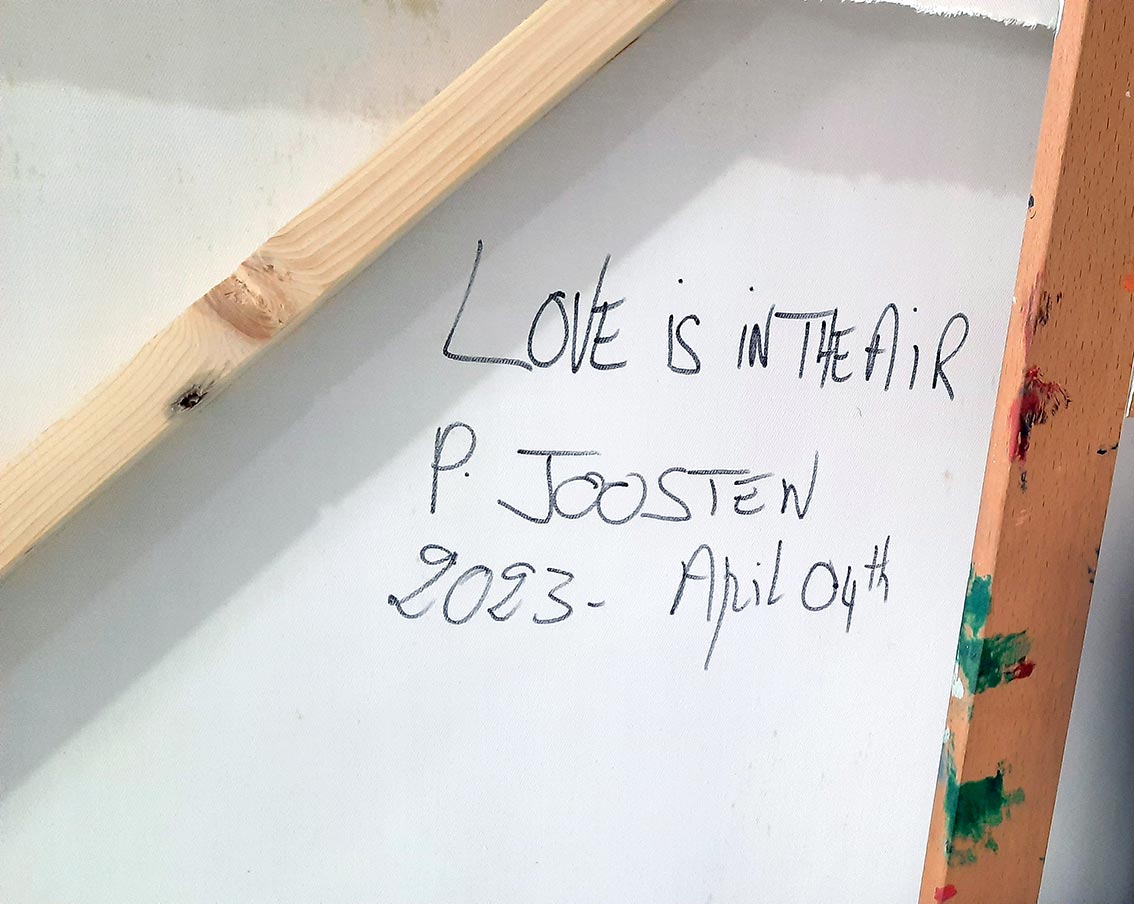 LOVE iS iN THE AiR
P. JOOSTEN
2023- April 04th